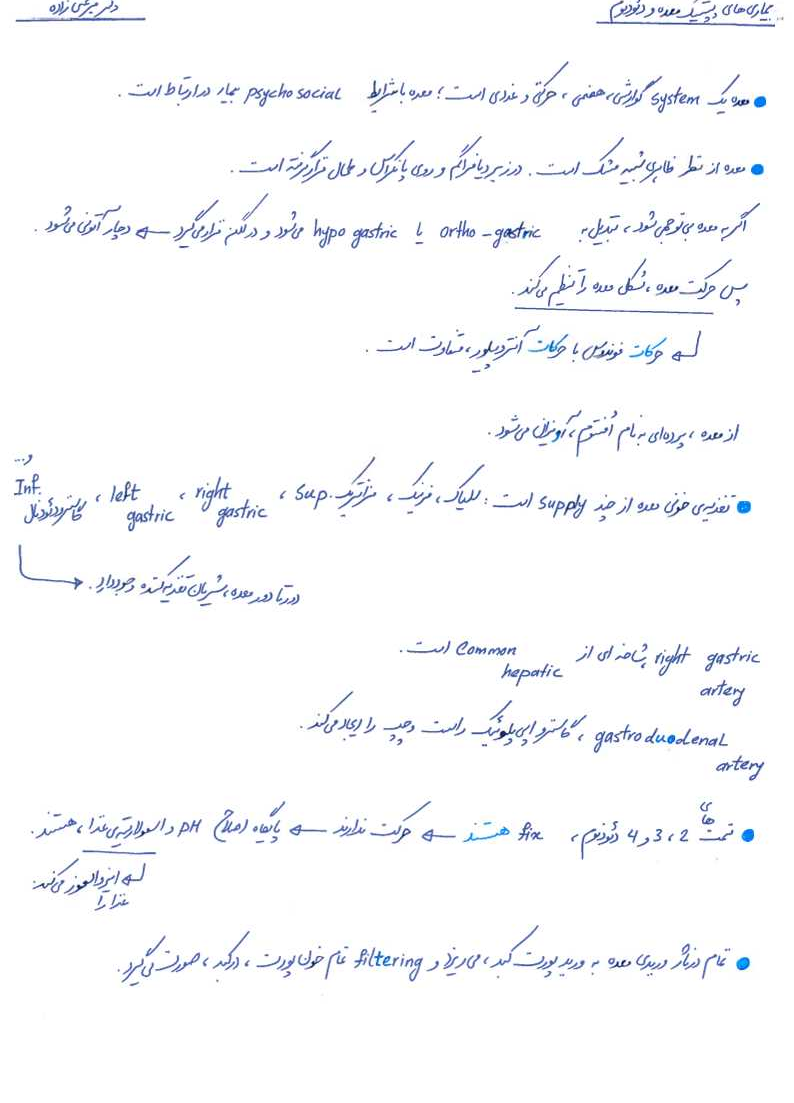 بیماری‌های پپتیک معده و دئودنوم
دکتر مرعشی زاده
معده یک system گوارشی، هضمی، حرکتی و غددی است؛ معده با شرایط psychosocial بیمار در ارتباط است.
معده از نظر ظاهری شبیه مشک است. در زیر دیافراگم و روی پانکراس و طحال قرار گرفته است.
اگر به معده بی توجهی شود، تبدیل به ortho-gastric یا hypo gastric می‌شود و در لگن قرار می‌گیرد ← دچار آتونی می‌شود.
پس حرکت معده، شکل معده را تنظیم می‌کند.
← حرکات فوندوس با حرکات آنتروپیلور، متفاوت است.
از معده، پرده‌ای به نام اُمنتوم، آویزان می‌شود.
تغذیه‌ی خونی معده از چند supply است: سلیاک، فرنیک، مزانتریک sup.، right gastric، left gastric، گاسترودئودنال Inf. و...
→ دور تا دور معده، شریان تغذیه کننده وجود دارد.
right gastric artery شاخه‌ای از Common hepatic است.
gastroduodenal artery، گاسترو اپی پلوئیک راست و چپ را ایجاد می‌کند.
قسمت های ی 2، 3 و 4 دئودنوم، fix هستند ← حرکت ندارند ← پایگاه اصلاح pH و اسمولاریته‌ی غذا، هستند.
← ایزواسموز می‌کند غذا را
تمام درناژ وریدی معده به ورید پورت کبد، می‌ریزد و filtering تمام خون پورت، در کبد، صورت می‌گیرد.